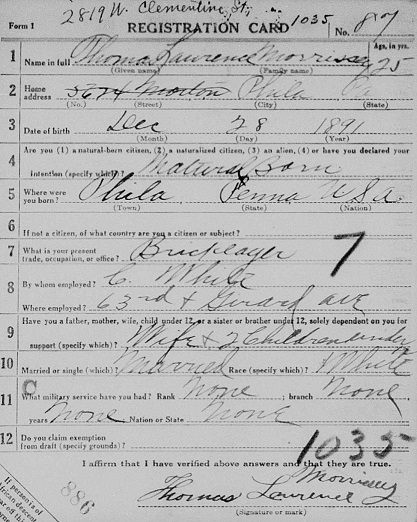 2819 W. Clementine St.,
Form 1 REGISTRATION CARD 1035 No. 87
1 Name in full Thomas Lawrence Morrissey Age, in yrs. 25
(Given name) (Family name)
2 Home address 3624 Morton Phila Pa
(No.) (Street) (City) (State)
3 Date of birth Dec 28 1891
(Month) (Day) (Year)
4 Are you (1) a natural-born citizen, (2) a naturalized citizen, (3) an alien, (4) or have you declared your
intention (specify which)? Natural Born
5 Where were you born? Phila Penna USa
(Town) (State) (Nation)
6 If not a citizen, of what country are you a citizen or subject?
7 What is your present trade, occupation, or office? Bricklayer 7
8 By whom employed? C. White
Where employed? 63rd & Girard ave
9 Have you a father, mother, wife, child under 12, or a sister or brother under 12, solely dependent on you for
support (specify which)? Wife & 2 Children under 12
10 Married or single (which)? Married Race (specify which)? White
C
11 What military service have you had? Rank None ; branch None
years None Nation or State None
12 Do you claim exemption from draft (specify grounds)?
1035
I affirm that I have verified above answers and that they are true.
Thomas Lawrence Morrissey
(Signature or mark)
886
If person is of
African descent